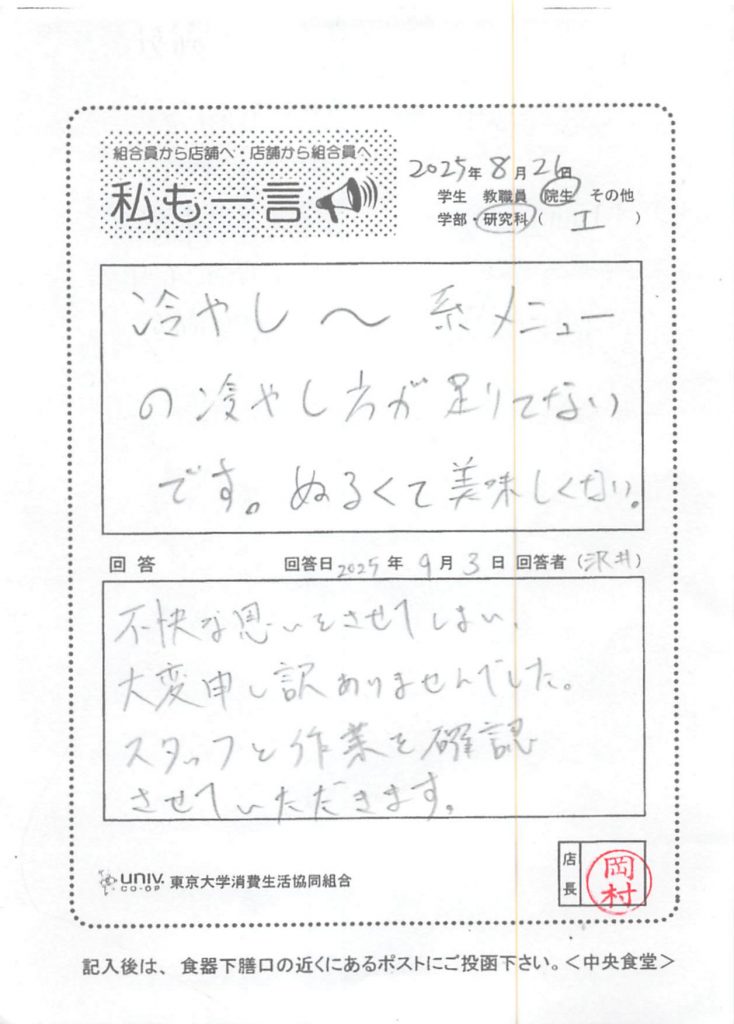 組合員から店舗へ・店舗から組合員へ
私も一言
2025年 8月 26日
学生 教職員 院生 その他
学部・研究科( 工 )
冷やし〜系メニュー
の冷やし方が足りてない
です。ぬるくて美味しくない。
回答 回答日2025年 9月 3日 回答者(沢井)
不快な思いをさせてしまい、
大変申し訳ありませんでした。
スタッフと作業を確認
させていただきます。
UNIV.
CO-OP
東京大学消費生活協同組合
店長
岡村
記入後は、食器下膳口の近くにあるポストにご投函下さい。<中央食堂>